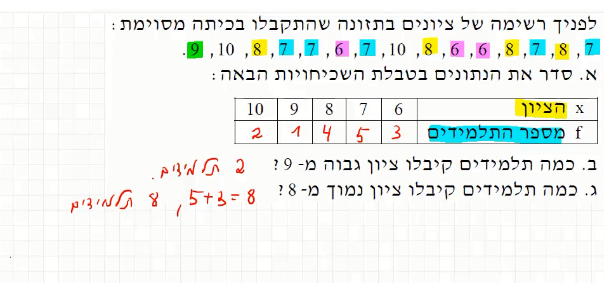 לפניך רשימה של ציונים בתזונה שהתקבלו בכיתה מסוימת:
7, 8, 7, 8, 6, 6, 8, 10, 7, 6, 7, 7, 8, 10, 9.
א. סדר את הנתונים בטבלת השכיחויות הבאה:
x הציון 6 7 8 9 10
f מספר התלמידים 3 5 4 1 2
ב. כמה תלמידים קיבלו ציון גבוה מ- 9? 2 תלמידים.
ג. כמה תלמידים קיבלו ציון נמוך מ- 8? 5+3=8, 8 תלמידים